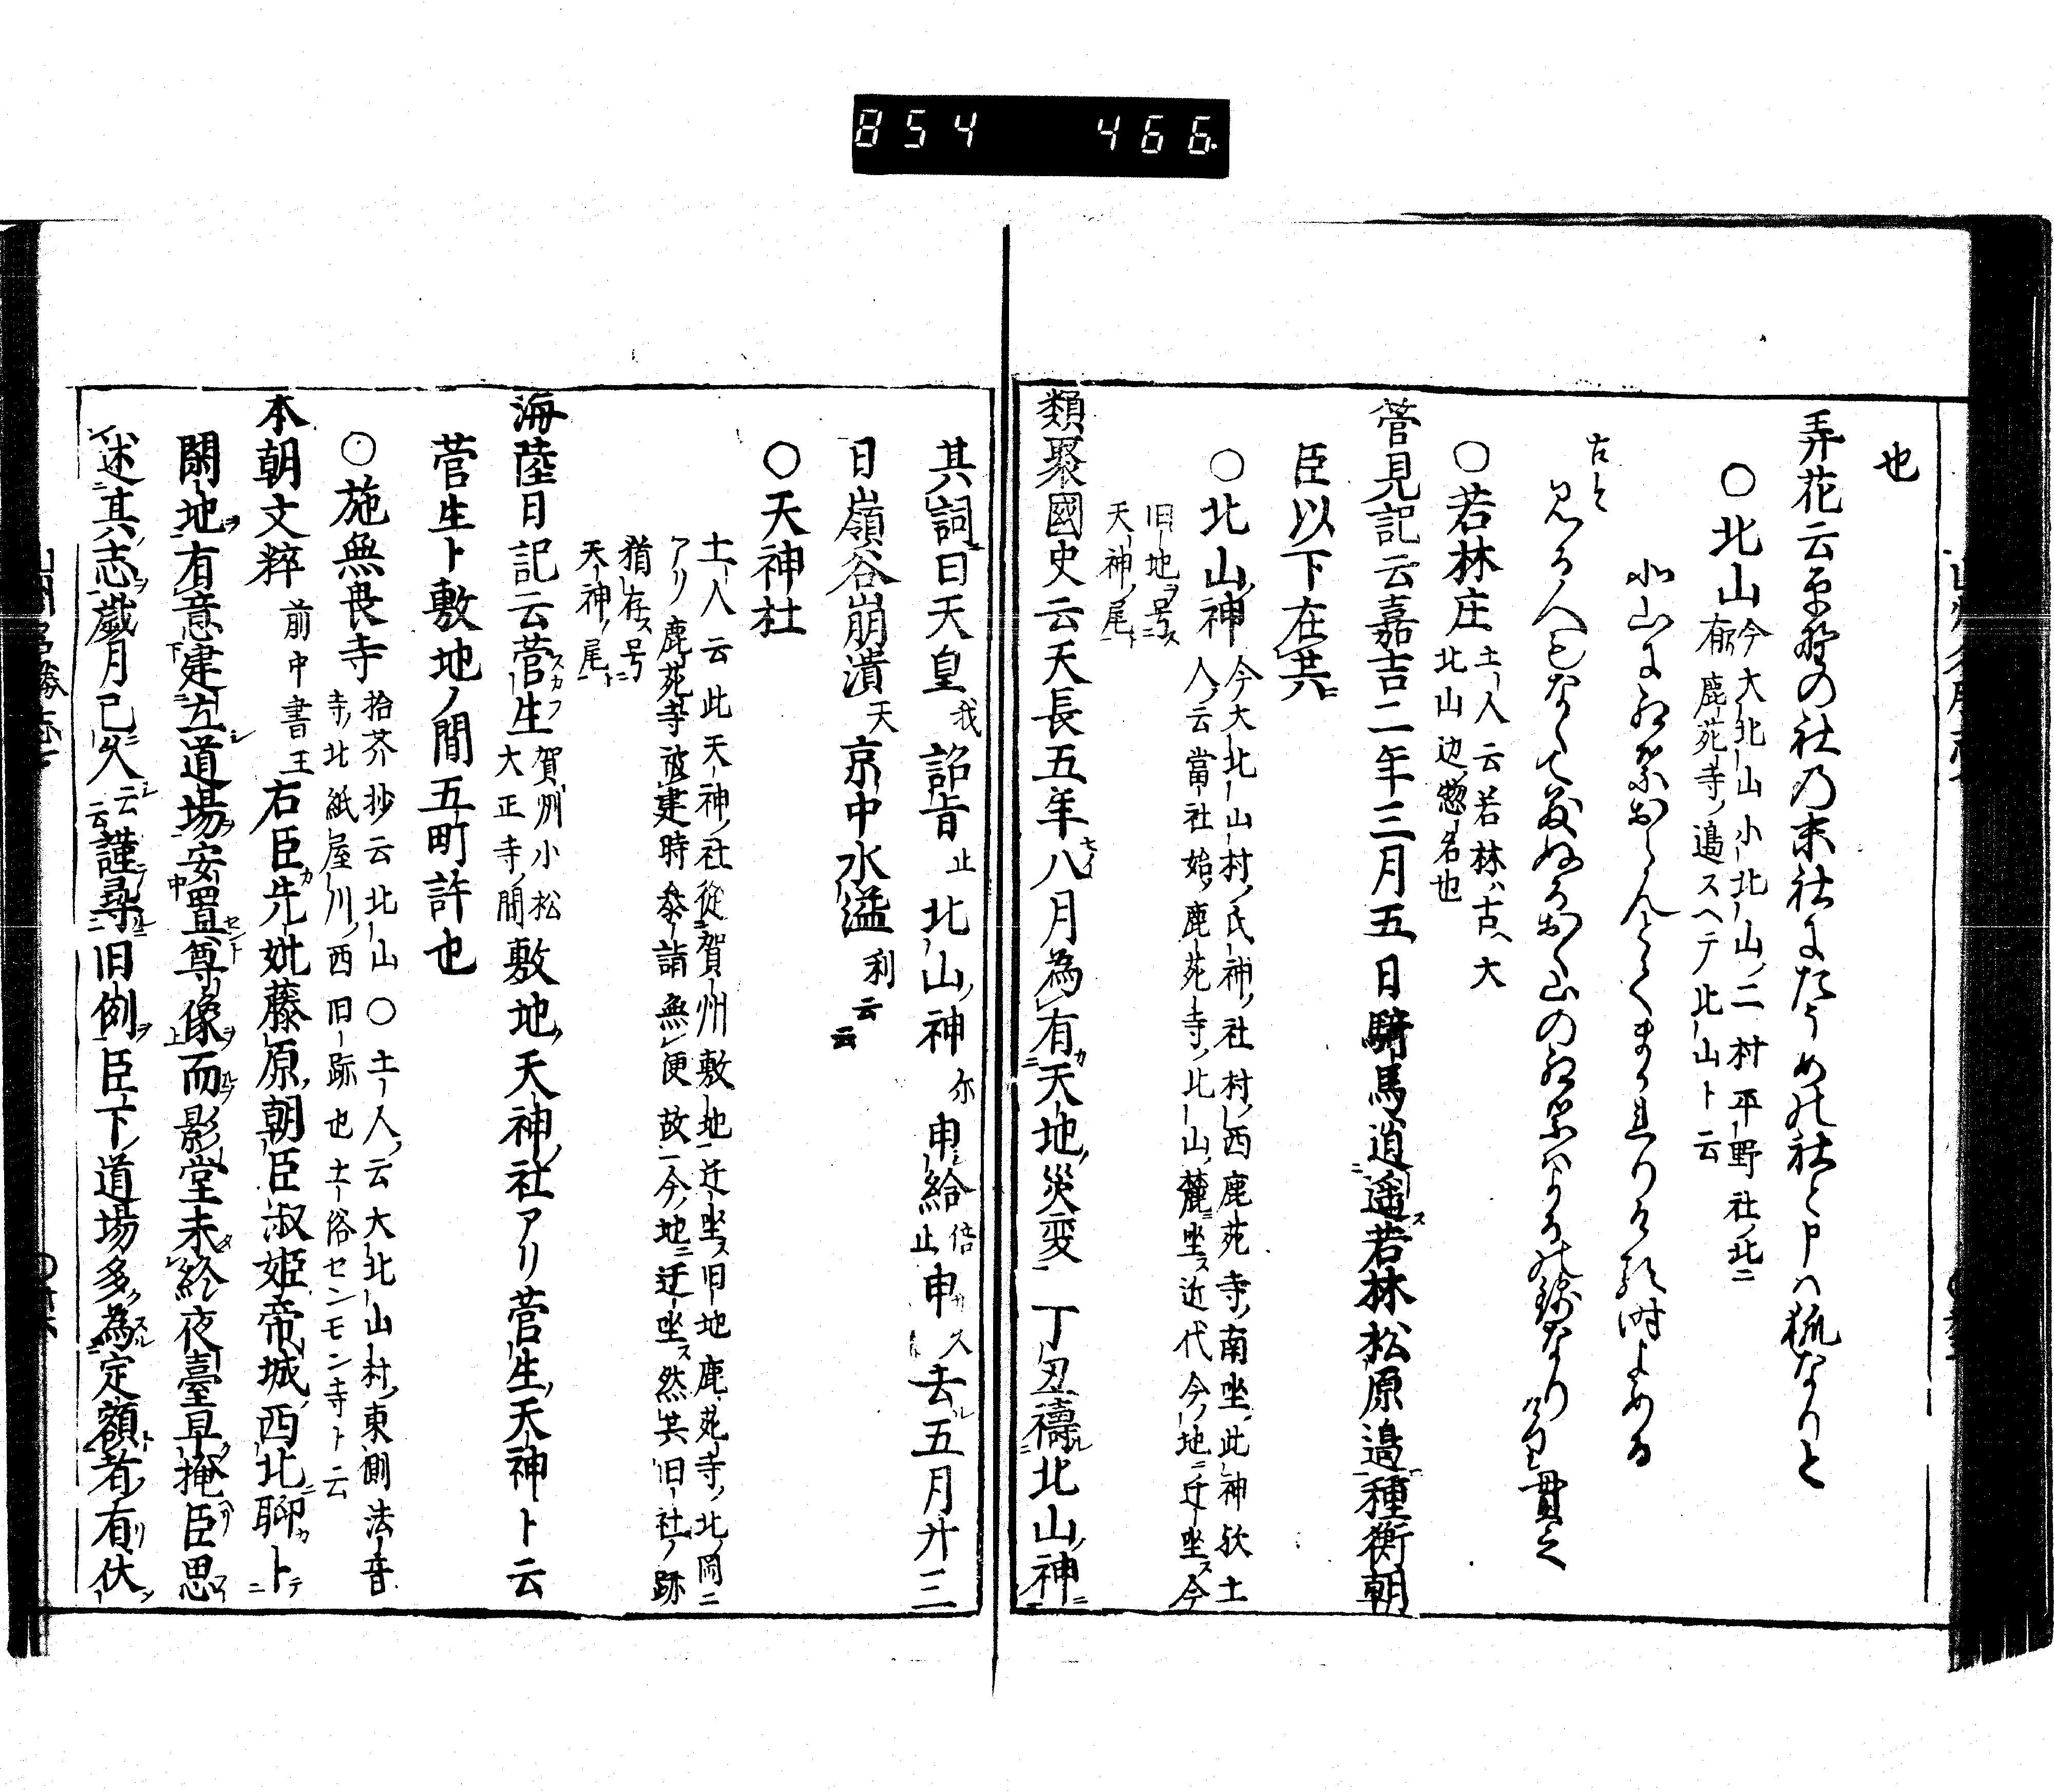 854 466
也
弄花云平野の社の末社にたうめの社と申ハ狐なりと
○北山 今大北山小北山ノ二村平野社ノ北ニ
有 鹿苑寺ノ邊スヘテ北山ト云
北山に紅葉おらんとてまかれりける時よめる
古今
見る人もなくて散ぬるおく山の紅葉ハよるの錦なりけり 貫之
○若林庄 土人云若林ハ古ヘ大
北山辺ノ惣名也
管見記云嘉吉二年三月五日騎馬逍遥若林松原邊種衡朝
臣以下在共
○北山ノ神 今大北山村ノ氏神ノ社村ノ西鹿苑寺ノ南坐此神欤土
人ノ云當社始ハ鹿苑寺ノ北山ノ麓ニ坐ス近代今ノ地ニ迁坐ス今
旧地ヲ号ス
天神ノ尾ト
類聚國史云天長五年八月為有天地ノ災変丁丑禱北山ノ神
其詞曰天皇我詔旨止北山ノ神尓申給倍止申ス去五月廿三
日嶺谷崩潰天京中水溢利云云
○天神社
土人云此天神ノ社從賀州敷地迁坐ス旧地鹿苑寺ノ北ノ岡ニ
アリ鹿苑寺被建時参詣無便故今ノ地ニ迁坐ス然其旧社ノ跡
猶存ス号
天神ノ尾ト
海陸日記云菅生 賀ノ州小松
大正寺ノ間 敷地ノ天神ノ社アリ菅生ノ天神ト云
菅生ト敷地ノ間五町許也
○施無畏寺 拾芥抄云北山○土人ノ云大北山村ノ東側法音
寺ノ北紙屋川ノ西旧跡也土俗センモン寺ト云
本朝文粹 前中書王 右臣先妣藤原ノ朝臣淑姫帝城ノ西北聊卜
閑地有意建立道場安置尊像而影堂未終夜臺早掩臣思
述其志歳月已久云云謹尋旧例臣下ノ道場多為定額者有伏